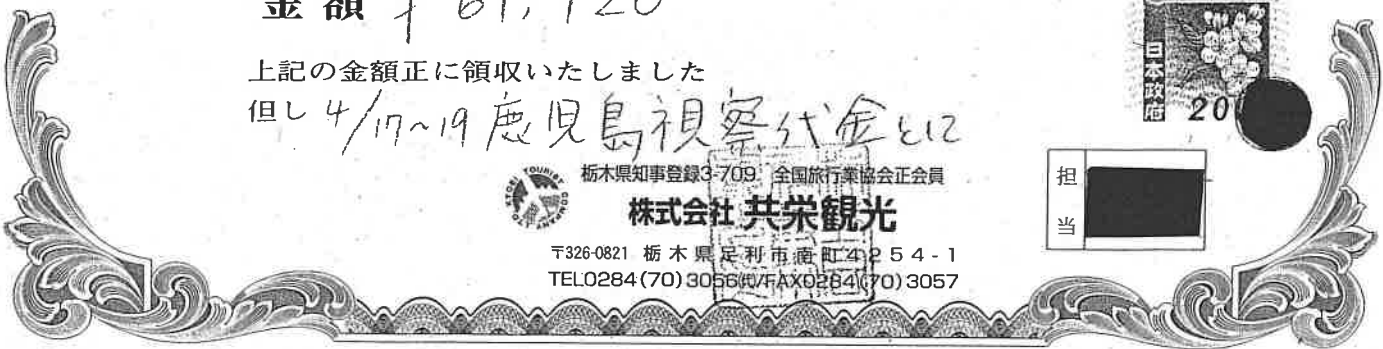 金額 ¥61,920
上記の金額正に領収いたしました
但し 4/17~19 鹿児島視察代金として
日本政府
20
栃木県知事登録3-709 全国旅行業協会正会員
株式会社 共栄観光
〒326-0821 栃木県足利市南町4254-1
TEL0284(70)3056㈹/FAX0284(70)3057
担当